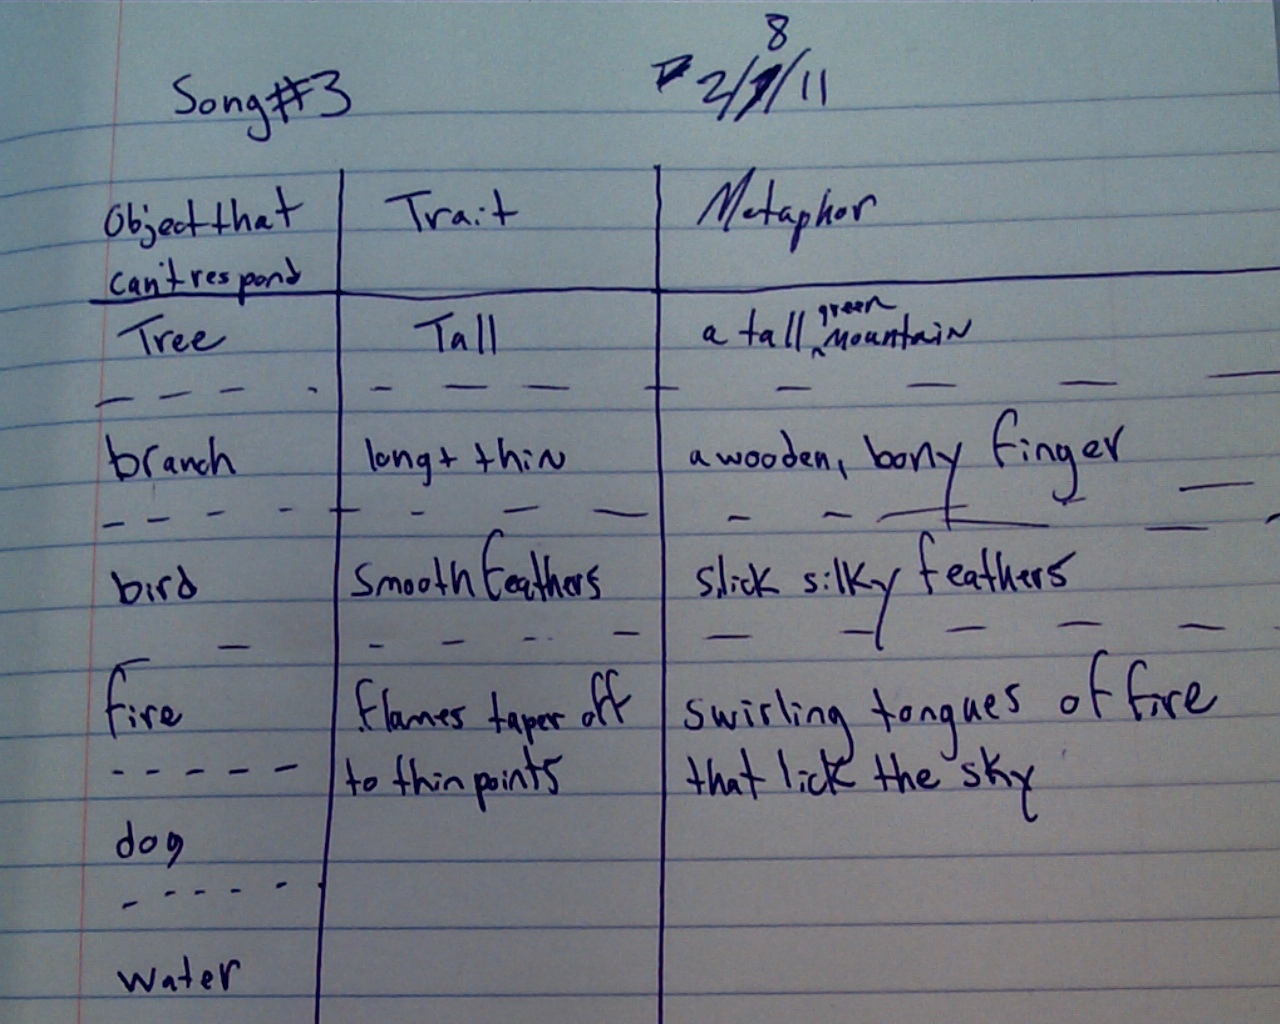 Song#3 2/8/11
Object that Trait Metaphor
can't respond
Tree Tall a tall green mountain
branch long + thin a wooden, bony finger
bird smooth feathers slick silky feathers
fire flames taper off swirling tongues of fire
to thin points that lick the sky
dog
water